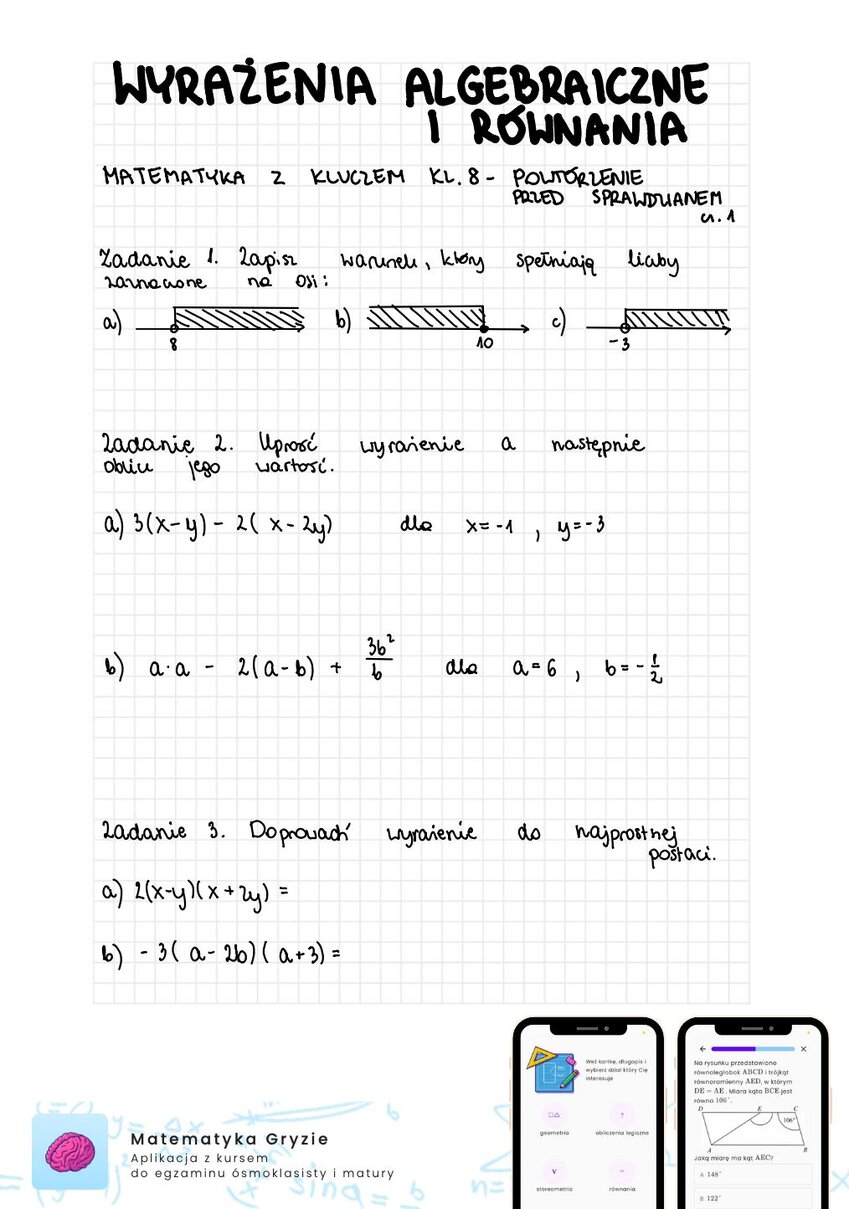 WYRAŻENIA ALGEBRAICZNE
I RÓWNANIA
MATEMATYKA Z KLUCZEM KL. 8 - POWTÓRZENIE
PRZED SPRAWDZIANEM
cz. 1
Zadanie 1. Zapisz warunek, który spełniają liczby
zaznaczone na osi:
a) 8 b) 10 c) -3
Zadanie 2. Uprość wyrażenie a następnie
oblicz jego wartość.
a) 3(x-y) - 2(x-2y) dla x=-1, y=-3
b) a·a - 2(a-b) + 3b²/b dla a=6, b=-1/2
Zadanie 3. Doprowadź wyrażenie do najprostnej
postaci.
a) 2(x-y)(x+2y) =
b) -3(a-2b)(a+3) =
Matematyka Gryzie
Aplikacja z kursem
do egzaminu ósmoklasisty i matury
Weź kartkę, długopis i
wybierz dział który Cię
interesuje
geometria obliczenia logiczne
stereometria równania
Na rysunku przedstawiono
równoległobok ABCD i trójkąt
równoramienny AED, w którym
DE = AE. Miara kąta BCE jest
równa 106°.
D E C
106°
A B
Jaką miarę ma kąt AEC?
A 148°
B 122°